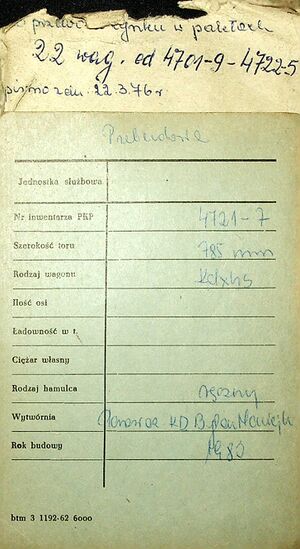 cynku w paletach
22 wag. od 4701-9 - 4722-5
pismo z dn. 22.3.76r
Przebudowa
Jednostka służbowa
Nr inwentarza PKP 4721-7
Szerokość toru 785 mm
Rodzaj wagonu Kdxhs
Ilość osi
Ładowność w t.
Ciężar własny
Rodzaj hamulca ręczny
Wytwórnia KD B.
Rok budowy 1983
btm 3 1192-62 6000